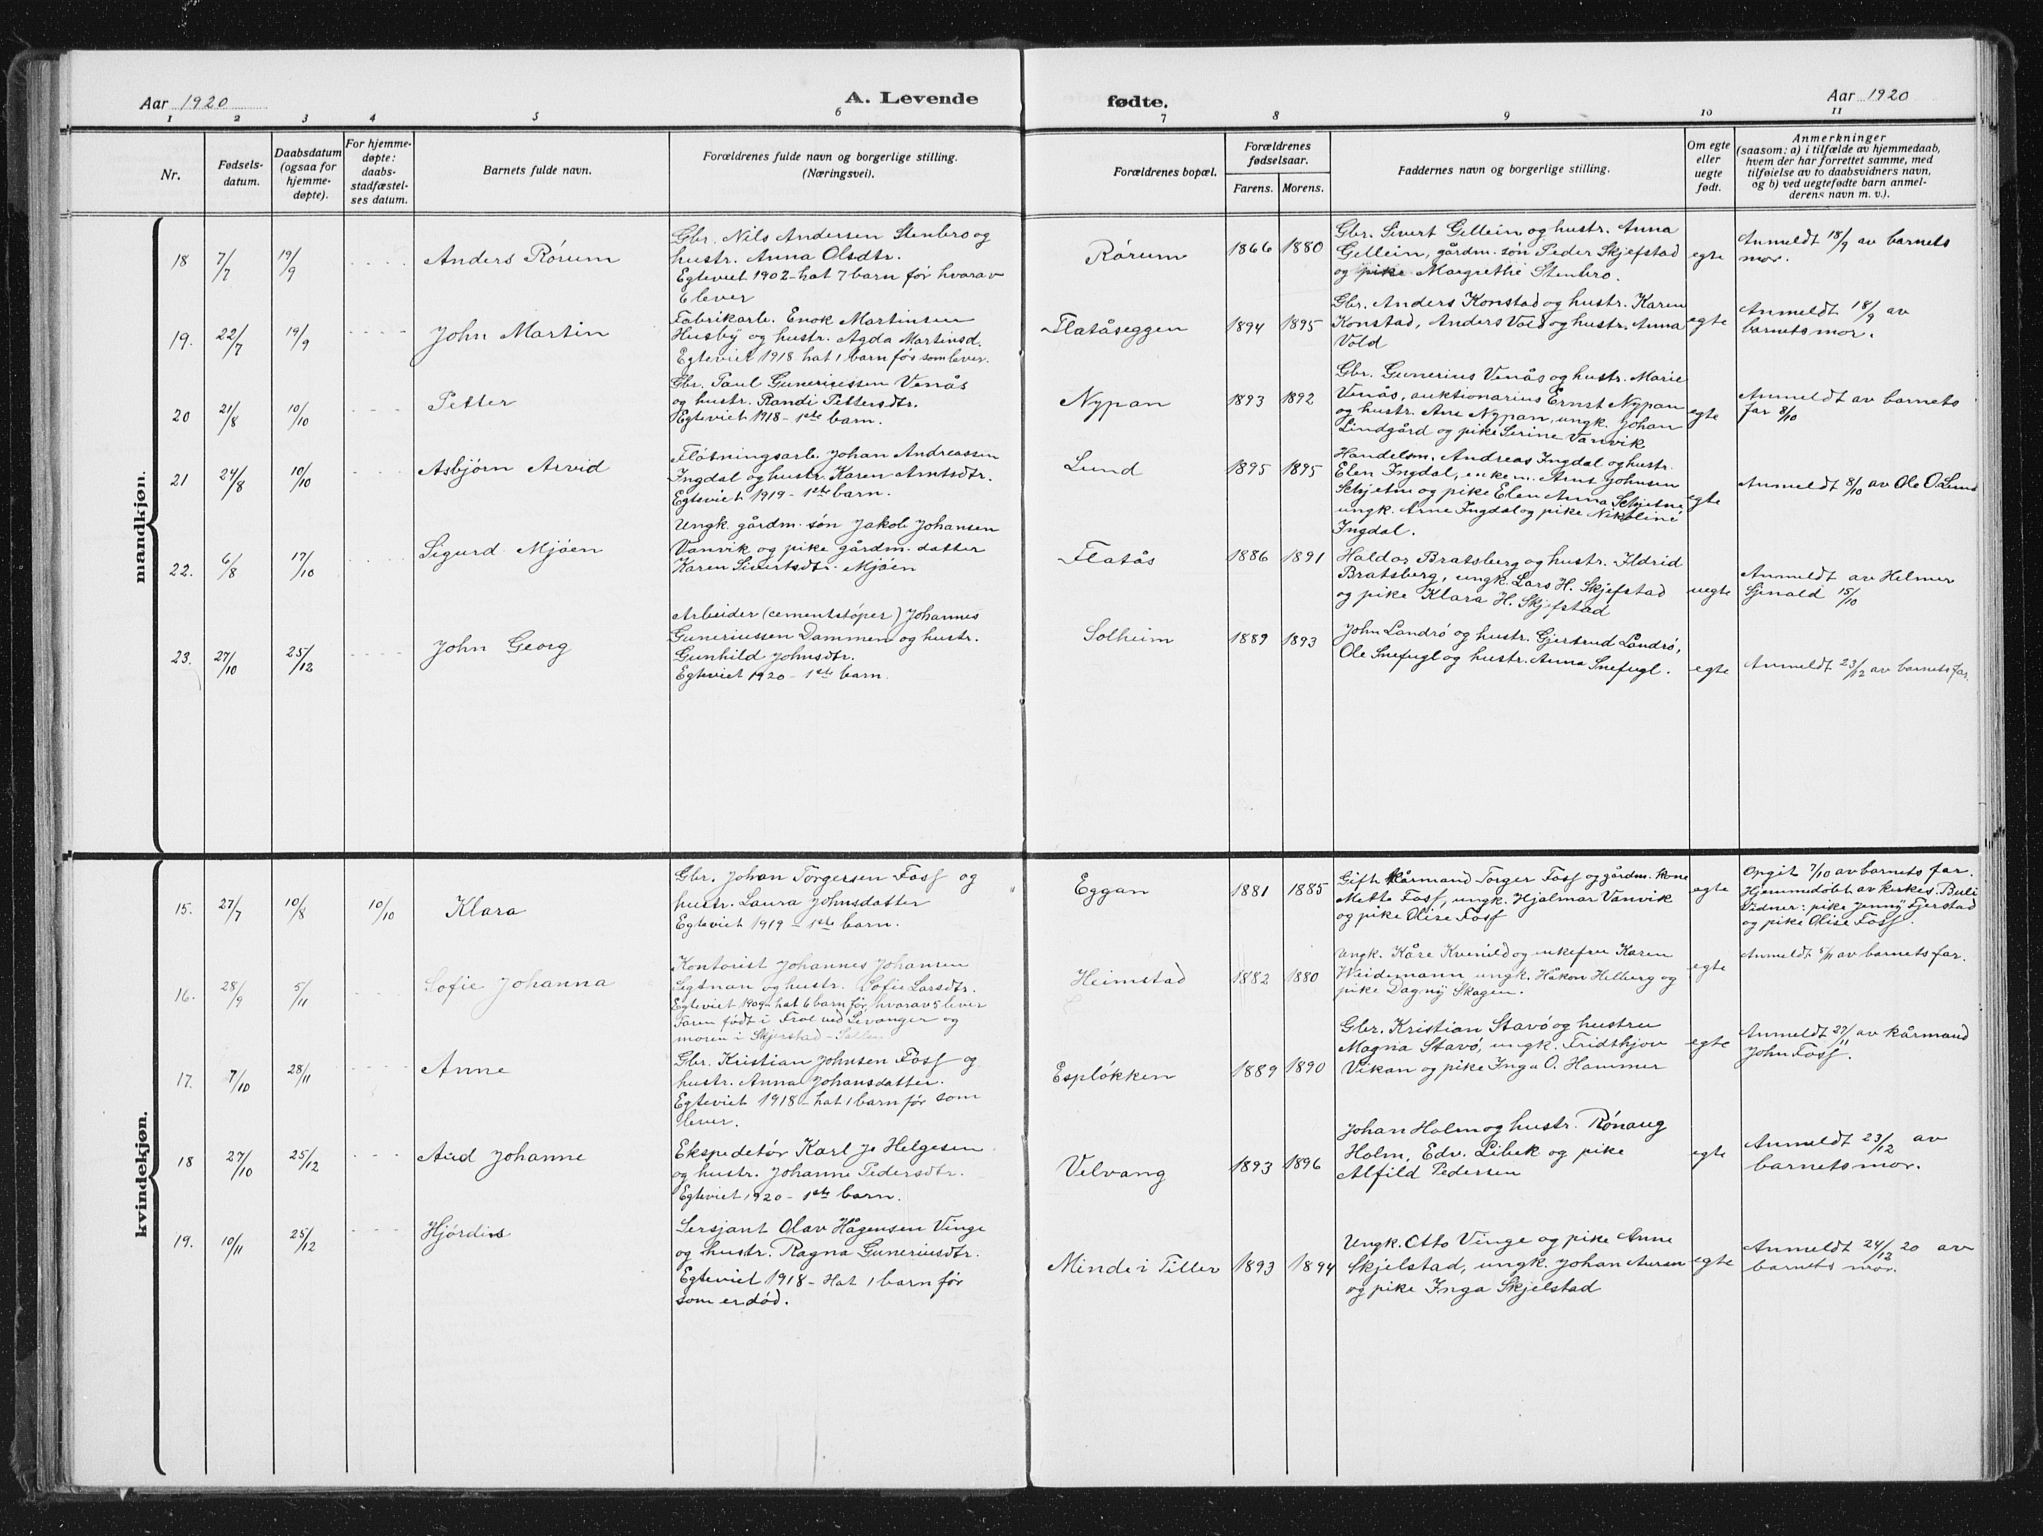 Aar 1920
A. Levende
fødte.
Aar 1920
1 2 3 4 5 6 7 8 9 10 11
Nr.
Fødsels-
datum.
Daabsdatum
(ogsaa for
hjemme-
døpte).
For hjemme-
døpte:
daabs-
stadfæstel-
ses datum.
Barnets fulde navn.
Forældrenes fulde navn og borgerlige stilling.
(Næringsvei).
Forældrenes bopæl.
Forældrenes
fødselsaar.
Farens. Morens.
Faddernes navn og borgerlige stilling.
Om egte
eller
uegte
født.
Anmerkninger
(saasom: a) i tilfælde av hjemmedaab,
hvem der har forrettet samme, med
tilføielse av to daabsvidners navn,
og b) ved uegtefødte barn anmel-
derens navn m. v.).
mandkjøn.
18 7/7 19/9 Anders Rørum
Gbr. Nils Andersen Stenbro og
hustr. Anna Olsdtr.
Egteviet 1902 - hat 7 barn før hvorav
6 lever
Rørum 1866 1880
Gbr. Sivert Gellein og hustr. Anna
Gellein, gårdm. søn Peder Skjefstad
og pike Margrethe Stenbro.
egte
Anmeldt 18/9 av barnets
mor.
19. 22/7 19/9 John Martin
Fabrikarb. Enok Martinsen
Husby og hustr. Agda Martinsd.
Egteviet 1918 hat 1 barn før som lever.
Flatåseggen 1894 1895
Gbr. Anders Konstad og hustr. Karen
Konstad, Anders Vold og hustr. Anna
Vold
egte
Anmeldt 18/9 av
barnets mor.
20 21/8 10/10 Petter
Gbr. Paul Guneriussen Venås
og hustr. Randi Pettersdtr.
Egteviet 1918 - 1ste barn.
Nypan 1893 1892
Gbr. Gunerius Venås og hustr. Marie
Venås, auktionarius Ernst Nypan
og hustr. Ane Nypan, ungk. Johan
Lindgård og pike Serine Vanvik
egte
Anmeldt av barnets
far 8/10
21 24/8 10/10 Asbjørn Arvid
Fløtningsarb. Johan Andreassen
Ingdal og hustr. Karen Arntsdtr.
Egteviet 1919 - 1ste barn.
Lund 1895 1895
Handelsm. Andreas Ingdal og hustr.
Elen Ingdal, enkem. Arnt Johnsen
Schjetne og pike Elen Anna Schjetne
ungk. Arne Ingdal og pike Nikoline
Ingdal.
egte
Anmeldt 8/10 av Ole O. Lund
22. 6/8 17/10 Sigurd Mjøen
Ungk. gårdm. søn Jakob Johansen
Vanvik og pike gårdm. datter
Karen Sivertsdtr. Mjøen
Flatås 1886 1891
Haldor Bratsberg og hustr. Ildrid
Bratsberg, ungk. Lars H. Skjefstad
og pike Klara H. Skjefstad
uegte
Anmeldt av Helmer
15/10
23. 27/10 25/12 John Georg
Arbeider (cementstøper) Johannes
Guneriussen Dammen og hustr.
Gunhild Johnsdtr.
Egteviet 1920 - 1ste barn.
Solheim 1889 1893
John Landrø og hustr. Gjertrud Landrø,
Ole Snefugl og hustr. Anna Snefugl.
egte
Anmeldt 23/12 av barnets far.
kvindekjøn.
15. 27/7 10/8 10/10 Klara
Gbr. Johan Torgersen Foss og
hustr. Laura Johnsdatter
Egteviet 1919 - 1ste barn.
Eggan 1881 1885
Gift kårmand Torger Foss og gårdm. kone
Mette Foss, ungk. Hjalmar Vanvik
og pike Olise Foss
egte
Opgit 7/10 av barnets far.
Hjemmedøbt av kirkes. Buli
Vidner: pike Jenny Fjerstad
og pike Olise Foss.
16. 28/9 5/11 Sofie Johanna
Kontorist Johannes Johansen
og hustr. Sofie Larsdtr.
Egteviet 1909 - hat 6 barn før hvorav 5 lever
Faren født i Frol ved Levanger og
moren i Skjerstad - Salten
Heimstad 1882 1880
Ungk. Kåre Kvenild og enkefru Karen
Weidemann ungk. Håkon Helberg og
pike Dagny Skagen.
egte
Anmeldt 5/11 av barnets far.
17. 7/10 28/11 Anne
Gbr. Kristian Johnsen Foss og
hustr. Anna Johansdatter.
Egteviet 1918 - hat 1 barn før som
lever.
Espløkken 1889 1890
Gbr. Kristian Stavø og hustru
Magna Stavø, ungk. Fridthjov
Vikan og pike Inga O. Hammer
egte
Anmeldt 27/11 av kårmand
John Foss.
18 27/10 25/12 Aud Johanne
Ekspeditør Karl J. Helgesen
og hustr. Johanne Pedersdtr.
Egteviet 1920 - 1ste barn.
Velvang 1893 1896
Johan Holm og hustr. Rønaug
Holm, Edv. Libek og pike
Alfild Pedersen
egte
Anmeldt 23/12 av
barnets mor.
19. 10/11 25/12 Hjørdis
Sersjant Olav Hågensen Vinge
og hustr. Ragna Guneriusdtr.
Egteviet 1918 - Hat 1 barn før
som er død.
Minde i Tiller 1893 1894
Ungk. Otto Vinge og pike Anne
Skjelstad, ungk. Johan Auran
og pike Inga Skjelstad
egte
Anmeldt 24/12 20 av
barnets mor.